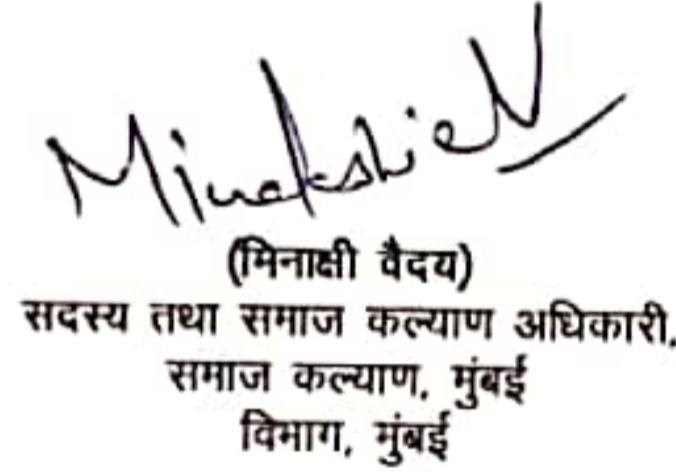 Minakshi eV
(मिनाक्षी वैदय)
सदस्य तथा समाज कल्याण अधिकारी,
समाज कल्याण, मुंबई
विभाग, मुंबई